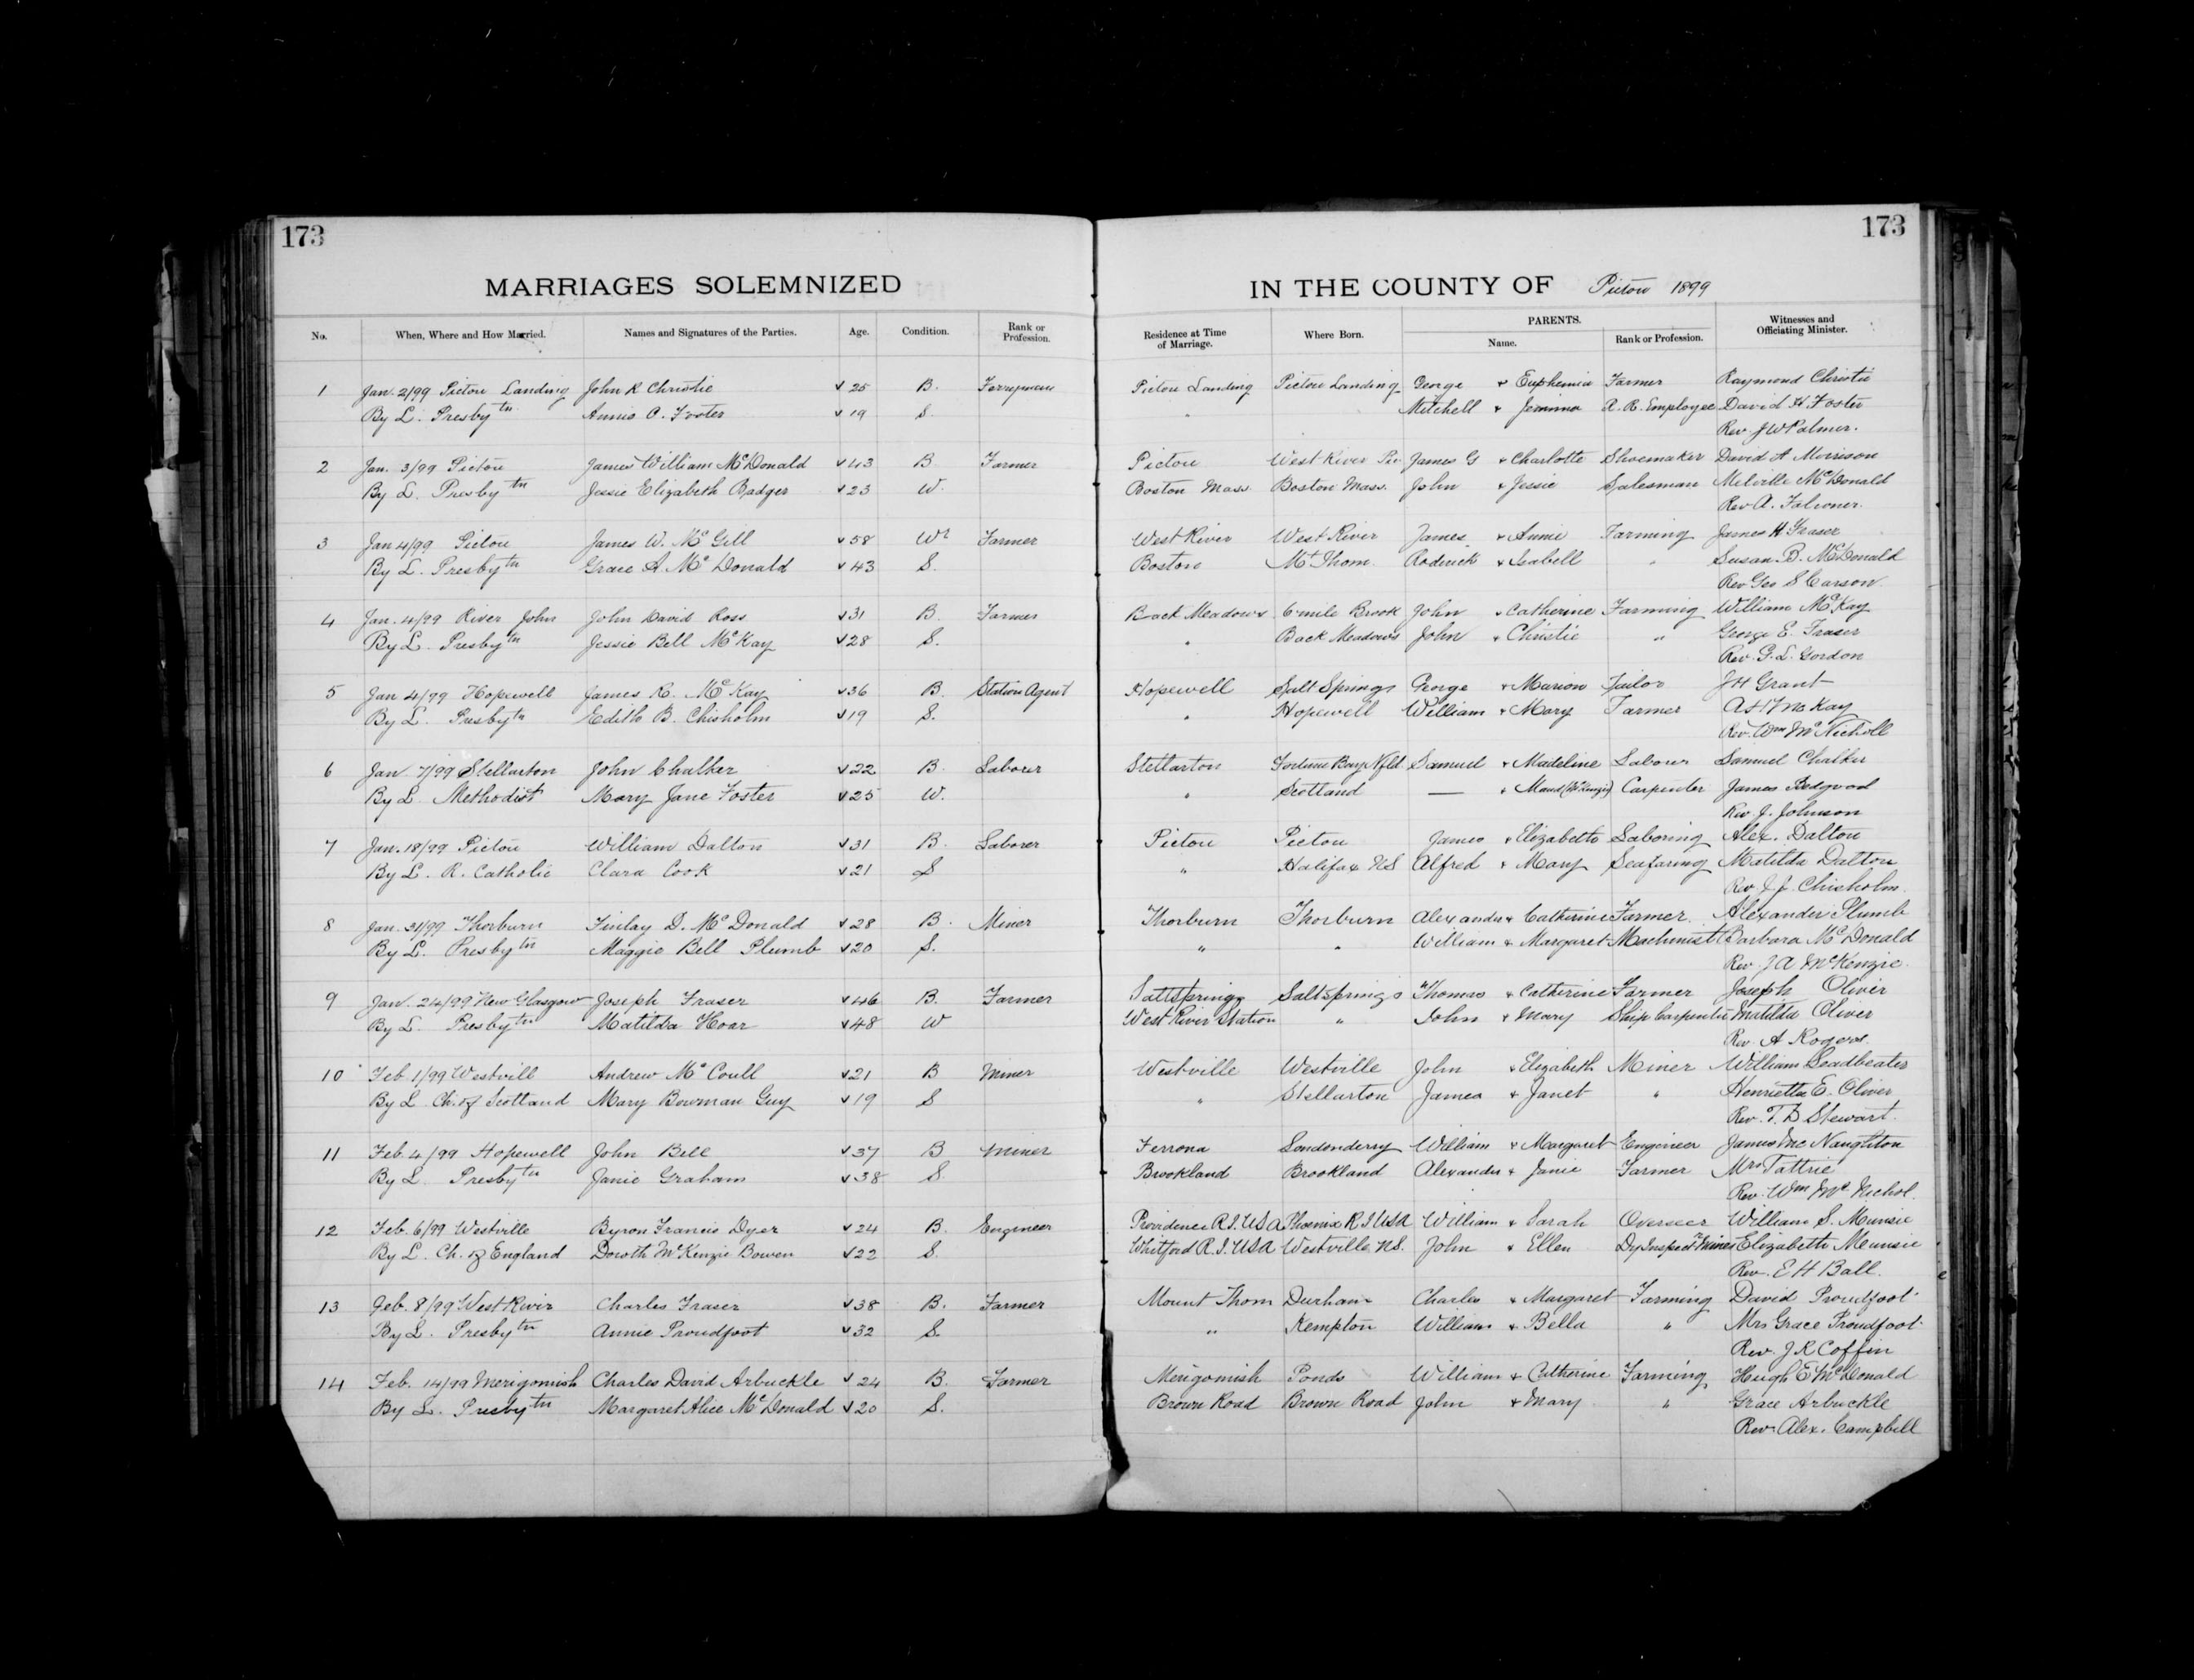 173
173
MARRIAGES SOLEMNIZED IN THE COUNTY OF Pictou 1899
No. When, Where and How Married. Names and Signatures of the Parties. Age. Condition. Rank or Profession. Residence at Time of Marriage. Where Born. PARENTS. Name. Rank or Profession. Witnesses and Officiating Minister.
1 Jan. 2/99 Pictou Landing John R Christie 25 B. Ferryman Pictou Landing Pictou Landing George & Euphemia Farmer Raymond Christie
By L. Presbytn Annie O. Foster 19 S. " Mitchell & Jemima R. R. Employee David H Foster
Rev. J W Palmer.
2 Jan. 3/99 Pictou James William McDonald 43 B. Farmer Pictou West River James G & Charlotte Shoemaker David A Morrison
By L. Presbytn Jessie Elizabeth Badger 23 W. Boston Mass. Boston Mass. John & Jessie Salesman Melville McDonald
Rev A. Falconer.
3 Jan 4/99 Pictou James W. McGill 58 Wr Farmer West River West River James & Annie Farming James H Fraser
By L. Presbytn Grace A McDonald 43 S. Boston Mt Thom Roderick & Isabell " Susan B. McDonald
Rev Geo S Carson
4 Jan. 4/99 River John John David Ross 31 B. Farmer Back Meadows 6 mile Brook John & Catherine Farming William McKay
By L. Presbytn Jessie Bell McKay 28 S. " Back Meadows John & Christie " George E. Fraser
Rev. G. L. Gordon
5 Jan 4/99 Hopewell James R. McKay 36 B. Station Agent Hopewell Salt Springs George & Marion Tailor J H Grant
By L. Presbytn Edith B. Chisholm 19 S. " Hopewell William & Mary Farmer A H McKay
Rev. Wm McNicholl
6 Jan. 7/99 Stellarton John Chalker 22 B. Laborer Stellarton Fortune Bay Nfld. Samuel & Madeline Laborer Samuel Chalker
By L. Methodist Mary Jane Foster 25 W. " Scotland — & Maud (McKenzie) Carpenter James Bedgood
Rev J. Johnson
7 Jan. 18/99 Pictou William Dalton 31 B. Laborer Pictou Pictou James & Elizabeth Laboring Alex. Dalton
By L. R. Catholic Clara Cook 21 S " Halifax NS Alfred & Mary Seafaring Matilda Dalton
Rev. J. J. Chisholm.
8 Jan. 31/99 Thorburn Finlay D. McDonald 28 B. Miner Thorburn Thorburn Alexander & Catherine Farmer Alexander Plumb
By L. Presbytn Maggie Bell Plumb 20 S. " " William & Margaret Machinist Barbara McDonald
Rev. J A McKenzie.
9 Jan. 24/99 New Glasgow Joseph Fraser 46 B. Farmer Saltsprings Saltsprings Thomas & Catherine Farmer Joseph Oliver
By L. Presbytn Matilda Hoar 48 W West River Station " John & Mary Ship Carpenter Matilda Oliver
Rev. A Rogers.
10 Feb. 1/99 Westvill Andrew McCoull 21 B Miner Westville Westville John & Elizabeth Miner William Leadbeater
By L Ch. of Scotland Mary Bowman Guy 19 S " Stellarton James & Janet " Henrietta E. Oliver
Rev. T. D Stewart.
11 Feb. 4/99 Hopewell John Bell 37 B Miner Ferrona Londonderry William & Margaret Engineer James McNaughton
By L. Presbytn Janie Graham 38 S. Brookland Brookland Alexander & Janie Farmer Mrs Tattrie
Rev. Wm Mc Nichol.
12 Feb. 6/99 Westville Byron Francis Dyer 24 B. Engineer Providence R.I. USA Phoenix R I USA William & Sarah Overseer William S. Munsie
By L. Ch. of England Dowth McKenzie Bowen 22 S. Whitford R.I. USA Westville NS. John & Ellen Dy Inspectr Mines Elizabeth Munsie
Rev. E H Ball.
13 Feb. 8/99 West River Charles Fraser 38 B. Farmer Mount Thom Durham Charles & Margaret Farming David Proudfoot
By L. Presbytn Annie Proudfoot 32 S. " Kempton William & Bella " Mrs Grace Proudfoot
Rev. J R Coffin
14 Feb. 14/99 Merigomish Charles David Arbuckle 24 B. Farmer Merigomish Ponds William & Catherine Farming Hugh E McDonald
By L. Presbytn Margaret Alice McDonald 20 S. Brown Road Brown Road John & Mary " Grace Arbuckle
Rev. Alex. Campbell